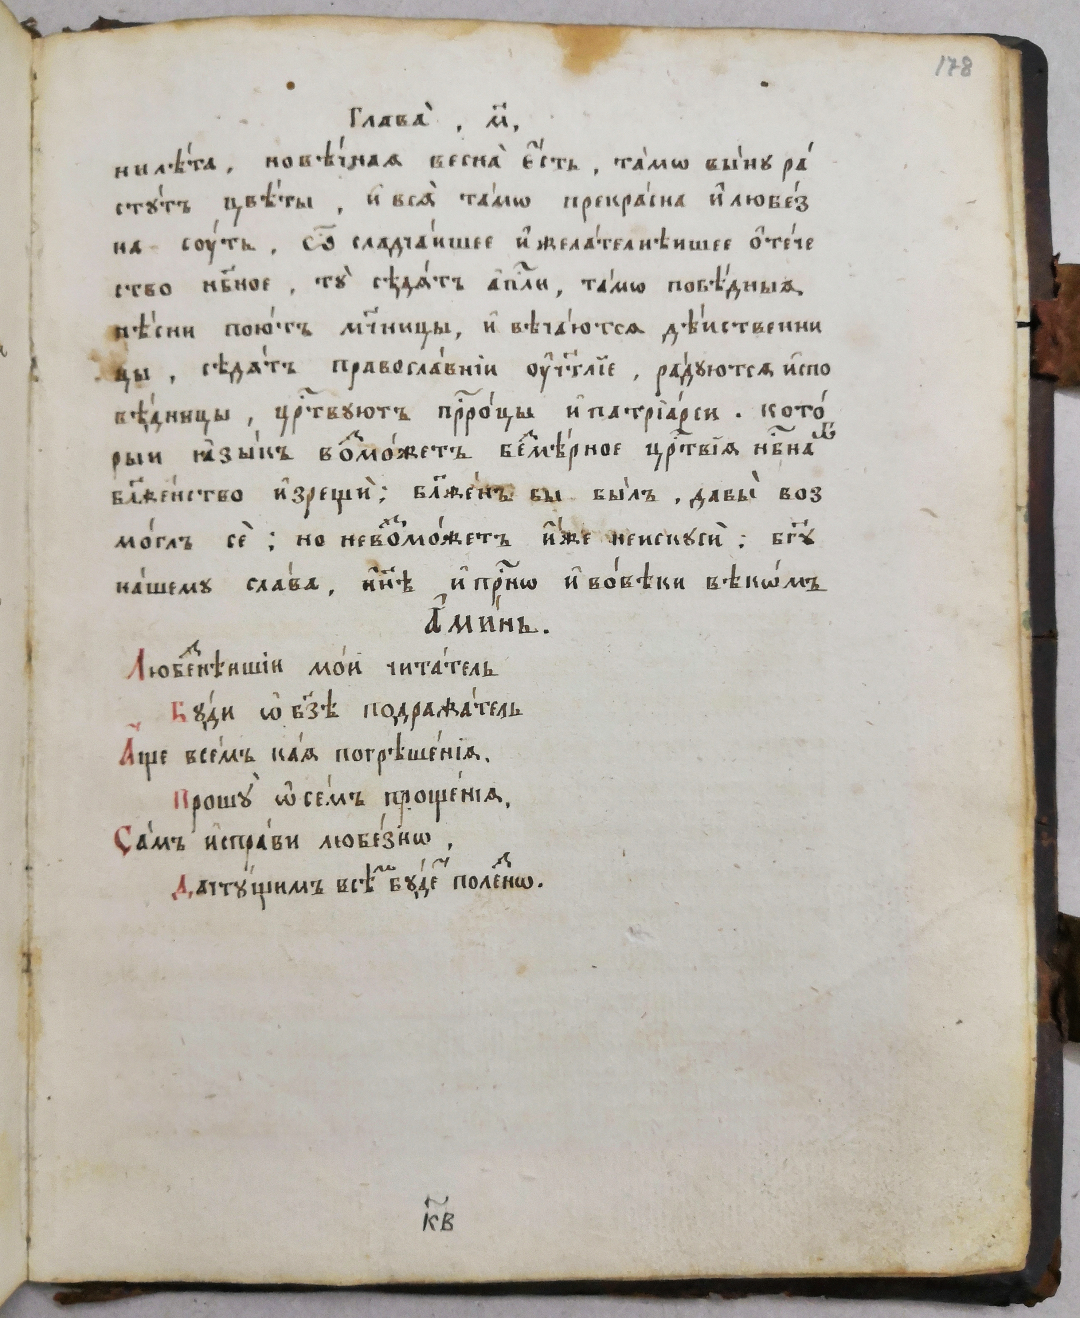 178
Глава̀ , м҃,
нилѣ́та , новѣ́чнаѧ весна̀ є҆́сть , та́мѡ вы́ну ра́
сту́тъ цвѣ́ты , и҆ всѧ̀ та́мѡ прекра́сна и҆ любе́з
на соу́ть , Ѽ сладча́ишее и҆ жела́телнѣишее о҆те́че
ство нб҃ное , ту̀ сѣдѧ́тъ а҆пⷭ҇ли , та́мѡ побѣ́дныѧ
пѣ́сни пою́тъ мч҃ницы, и҆ вѣча́ютсѧ дѣ́иственни
цы , сѣдѧ́тъ правосла́вніи оу҆чт҃лїе , ра́дуютсѧ и҆спо
вѣ́дницы , црⷭ҇твуютъ прⷪ҇ро́цы и҆ патрїа́рси . кото́
рыи ꙗ҆зы́къ воⷥмо́жетъ беⷥмѣ́рное црⷭ҇твїѧ нбⷭ҇наⷢ҇
бл҃же́нство и҆зрещѝ ; бл҃же́нъ бы бы́лъ , дабы̀ воз
мо́глъ сѐ ; но невоⷥмо́жетъ и҆́же неискусѝ ; бг҃у
на́шему сла́ва , нн҃ѣ и҆ прⷭ҇нѡ и҆ во́вѣки вѣкѡ́мъ
А҆ми́нь .
Любеⷥнѣишіи мо́и чита́тель
Бу́ди ѡ҆ бз҃ѣ подража́тель
А҆́ще все́мъ ка́ѧ погрѣше́нїѧ ,
Прошу̀ ѡ҆ се́мъ проще́нїѧ ,
Са́мъ и҆спра́ви любе́знѡ ,
Дачту́щимъ всѣⷨ бу́деⷮ поле́ⷥнѡ .
к҃в